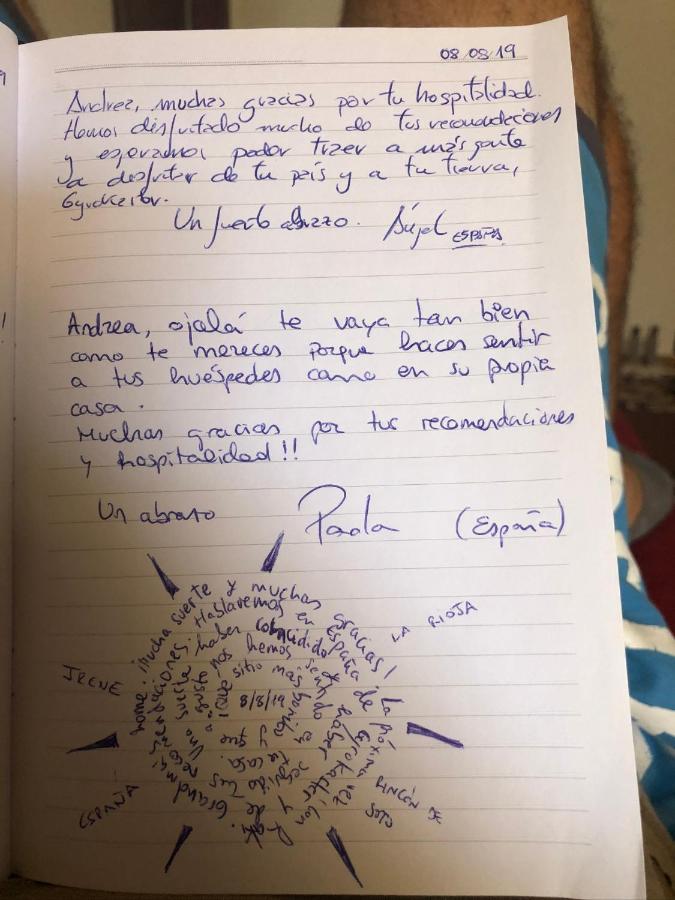 08 08 19
Andrea, muchas gracias por tu hospitalidad.
Hemos disfrutado mucho de tus recomendaciones
y esperamos poder traer a más gente
a disfrutar de tu país y a tu tierra,
Un fuerte abrazo. Ángel ESPAÑA
Andrea, ojalá te vaya tan bien
como te mereces porque haces sentir
a tus huéspedes como en su propia
casa.
Muchas gracias por tus recomendaciones
y hospitalidad!!
Un abrazo Paola (España)
8/8/19
¡Que sitio más bonito y que a gusto nos hemos sentido en tu casa.
Una suerte haber coincidido y haber seguido tus
recomendaciones. Hablaremos en España de Gyrokaster y de
Grandma's home! ¡Mucha suerte y muchas gracias! La próxima vez con
IRENE
ESPAÑA
LA RIOJA
RINCÓN DE